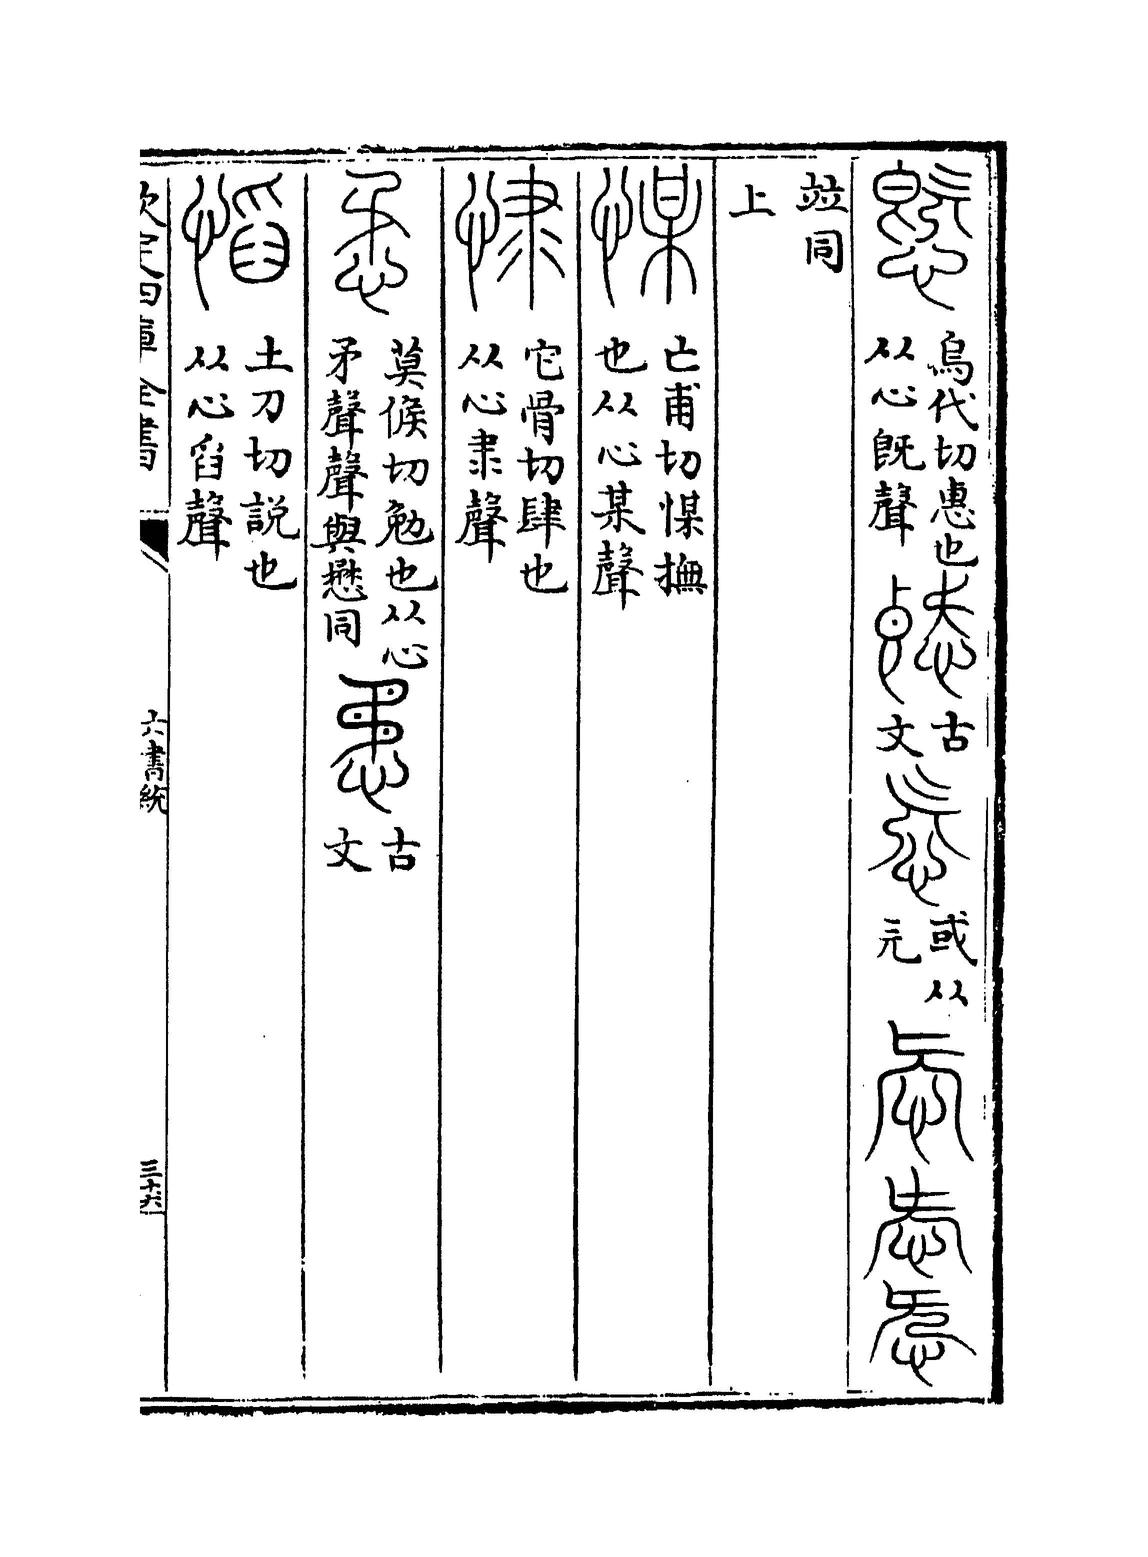 㤅烏代切惠也从心旣聲 古文 或从元
竝同上
㥒亡甫切㥒撫也从心某聲
㣽它骨切肆也从心隶聲
㤽莫候切勉也从心矛聲聲與懋同 古文
慆土刀切說也从心舀聲
欽定四庫全書 六書統 三十六